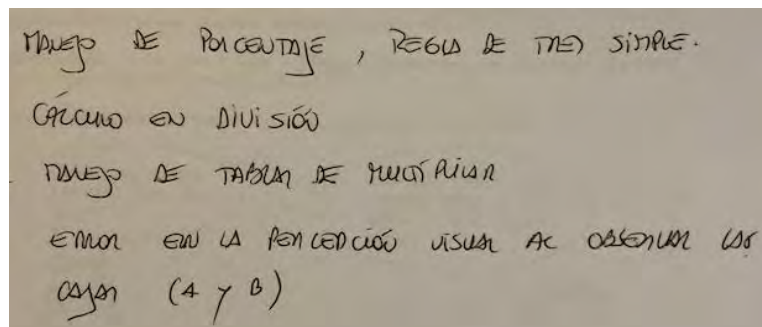 MANEJO DE PORCENTAJE, REGLA DE TRES SIMPLE.
CÁLCULO EN DIVISIÓN
MANEJO DE TABLAS DE MULTIPLICAR
ERROR EN LA PERCEPCIÓN VISUAL AL OBSERVAR LAS
CAJAS (A y B)